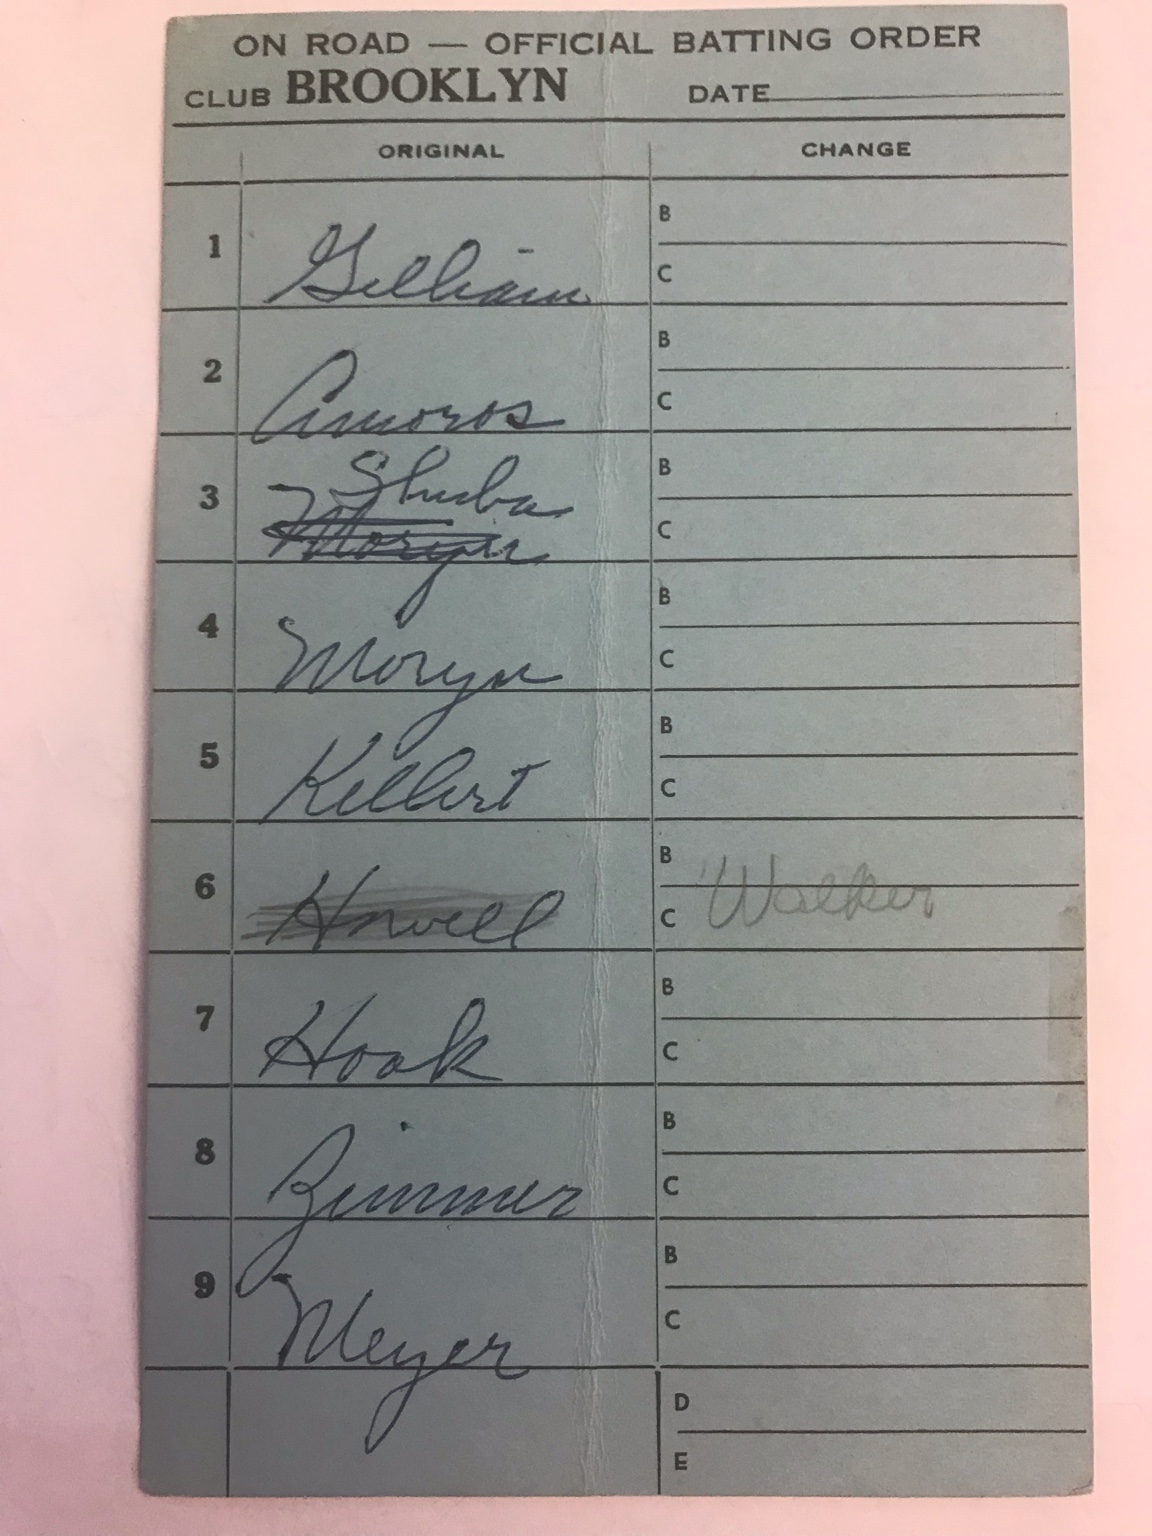 ON ROAD — OFFICIAL BATTING ORDER
CLUB BROOKLYN DATE
ORIGINAL CHANGE
1 Gilliam B
C
2 Amoros B
C
3 Shuba B
Moryn C
4 Moryn B
C
5 Kellert B
C
6 Howell B
C Walker
7 Hoak B
C
8 Zimmer B
C
9 Meyer B
C
D
E